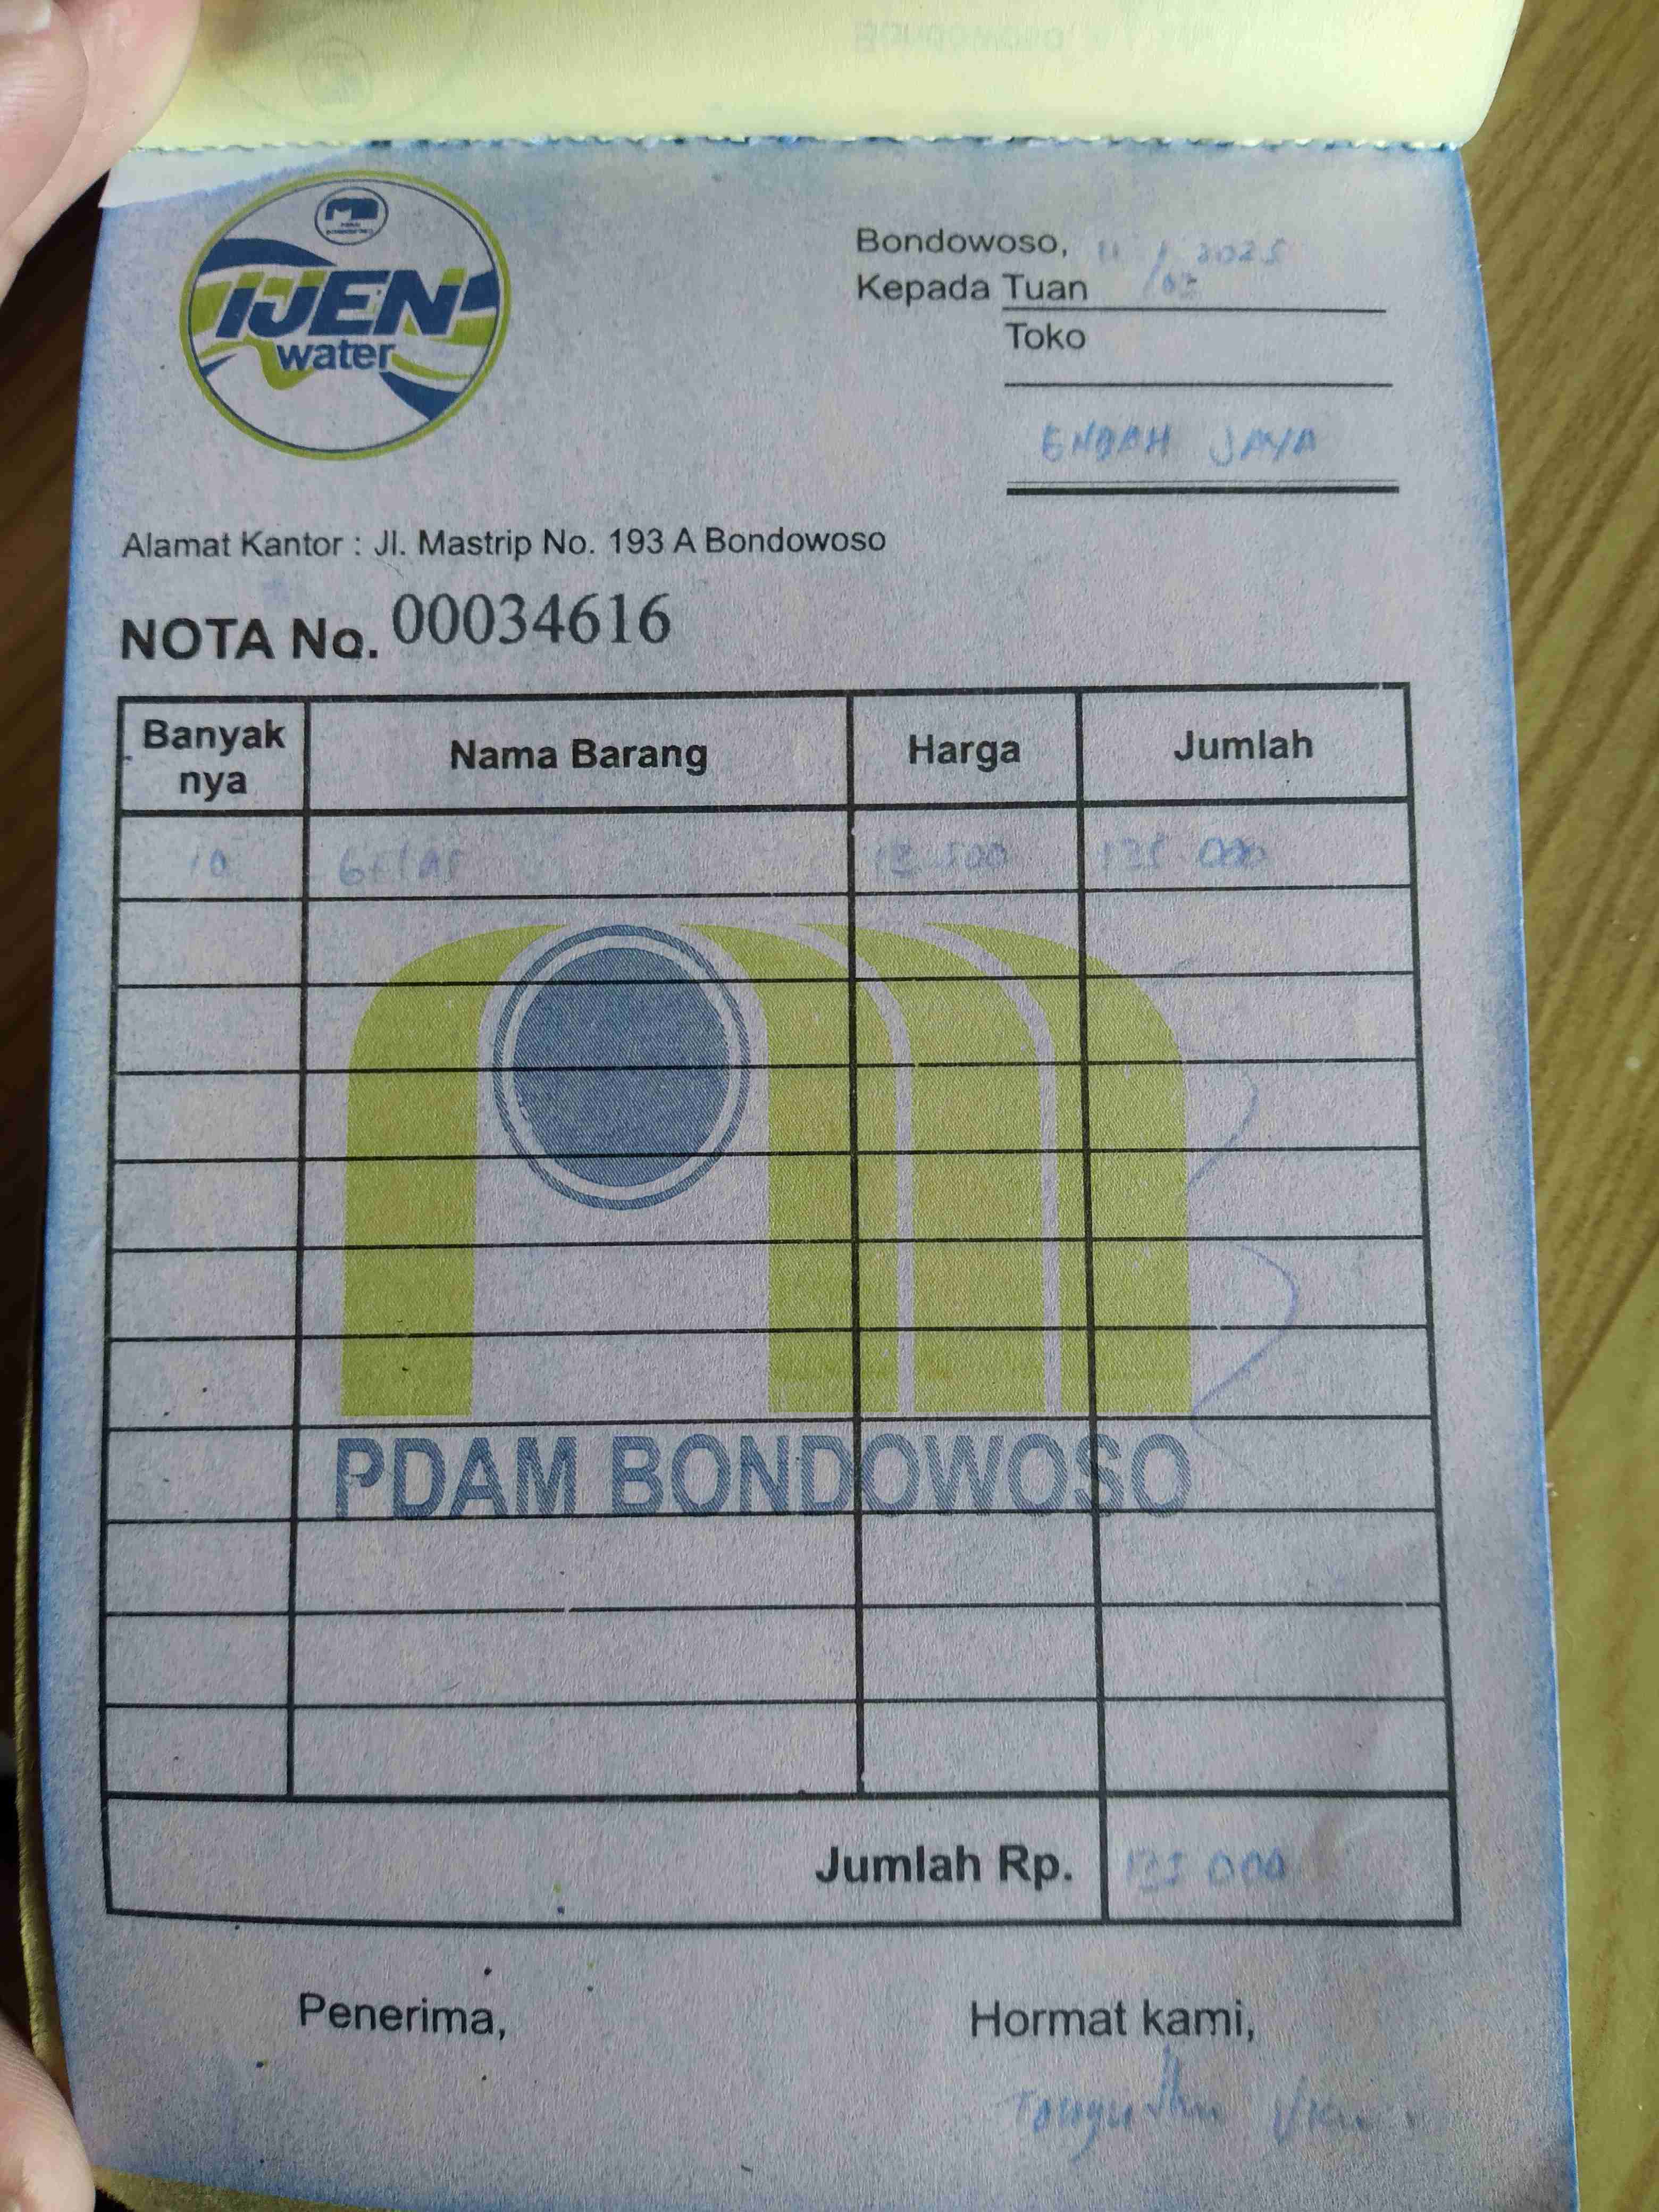 IJEN
water
Bondowoso, 11 / 03 / 2025
Kepada Tuan
Toko
ENDAH JAYA
Alamat Kantor : Jl. Mastrip No. 193 A Bondowoso
NOTA No. 00034616
Banyak nya Nama Barang Harga Jumlah
10 GELAS 13 500 135 000
PDAM BONDOWOSO
Jumlah Rp. 135 000
Penerima, Hormat kami,